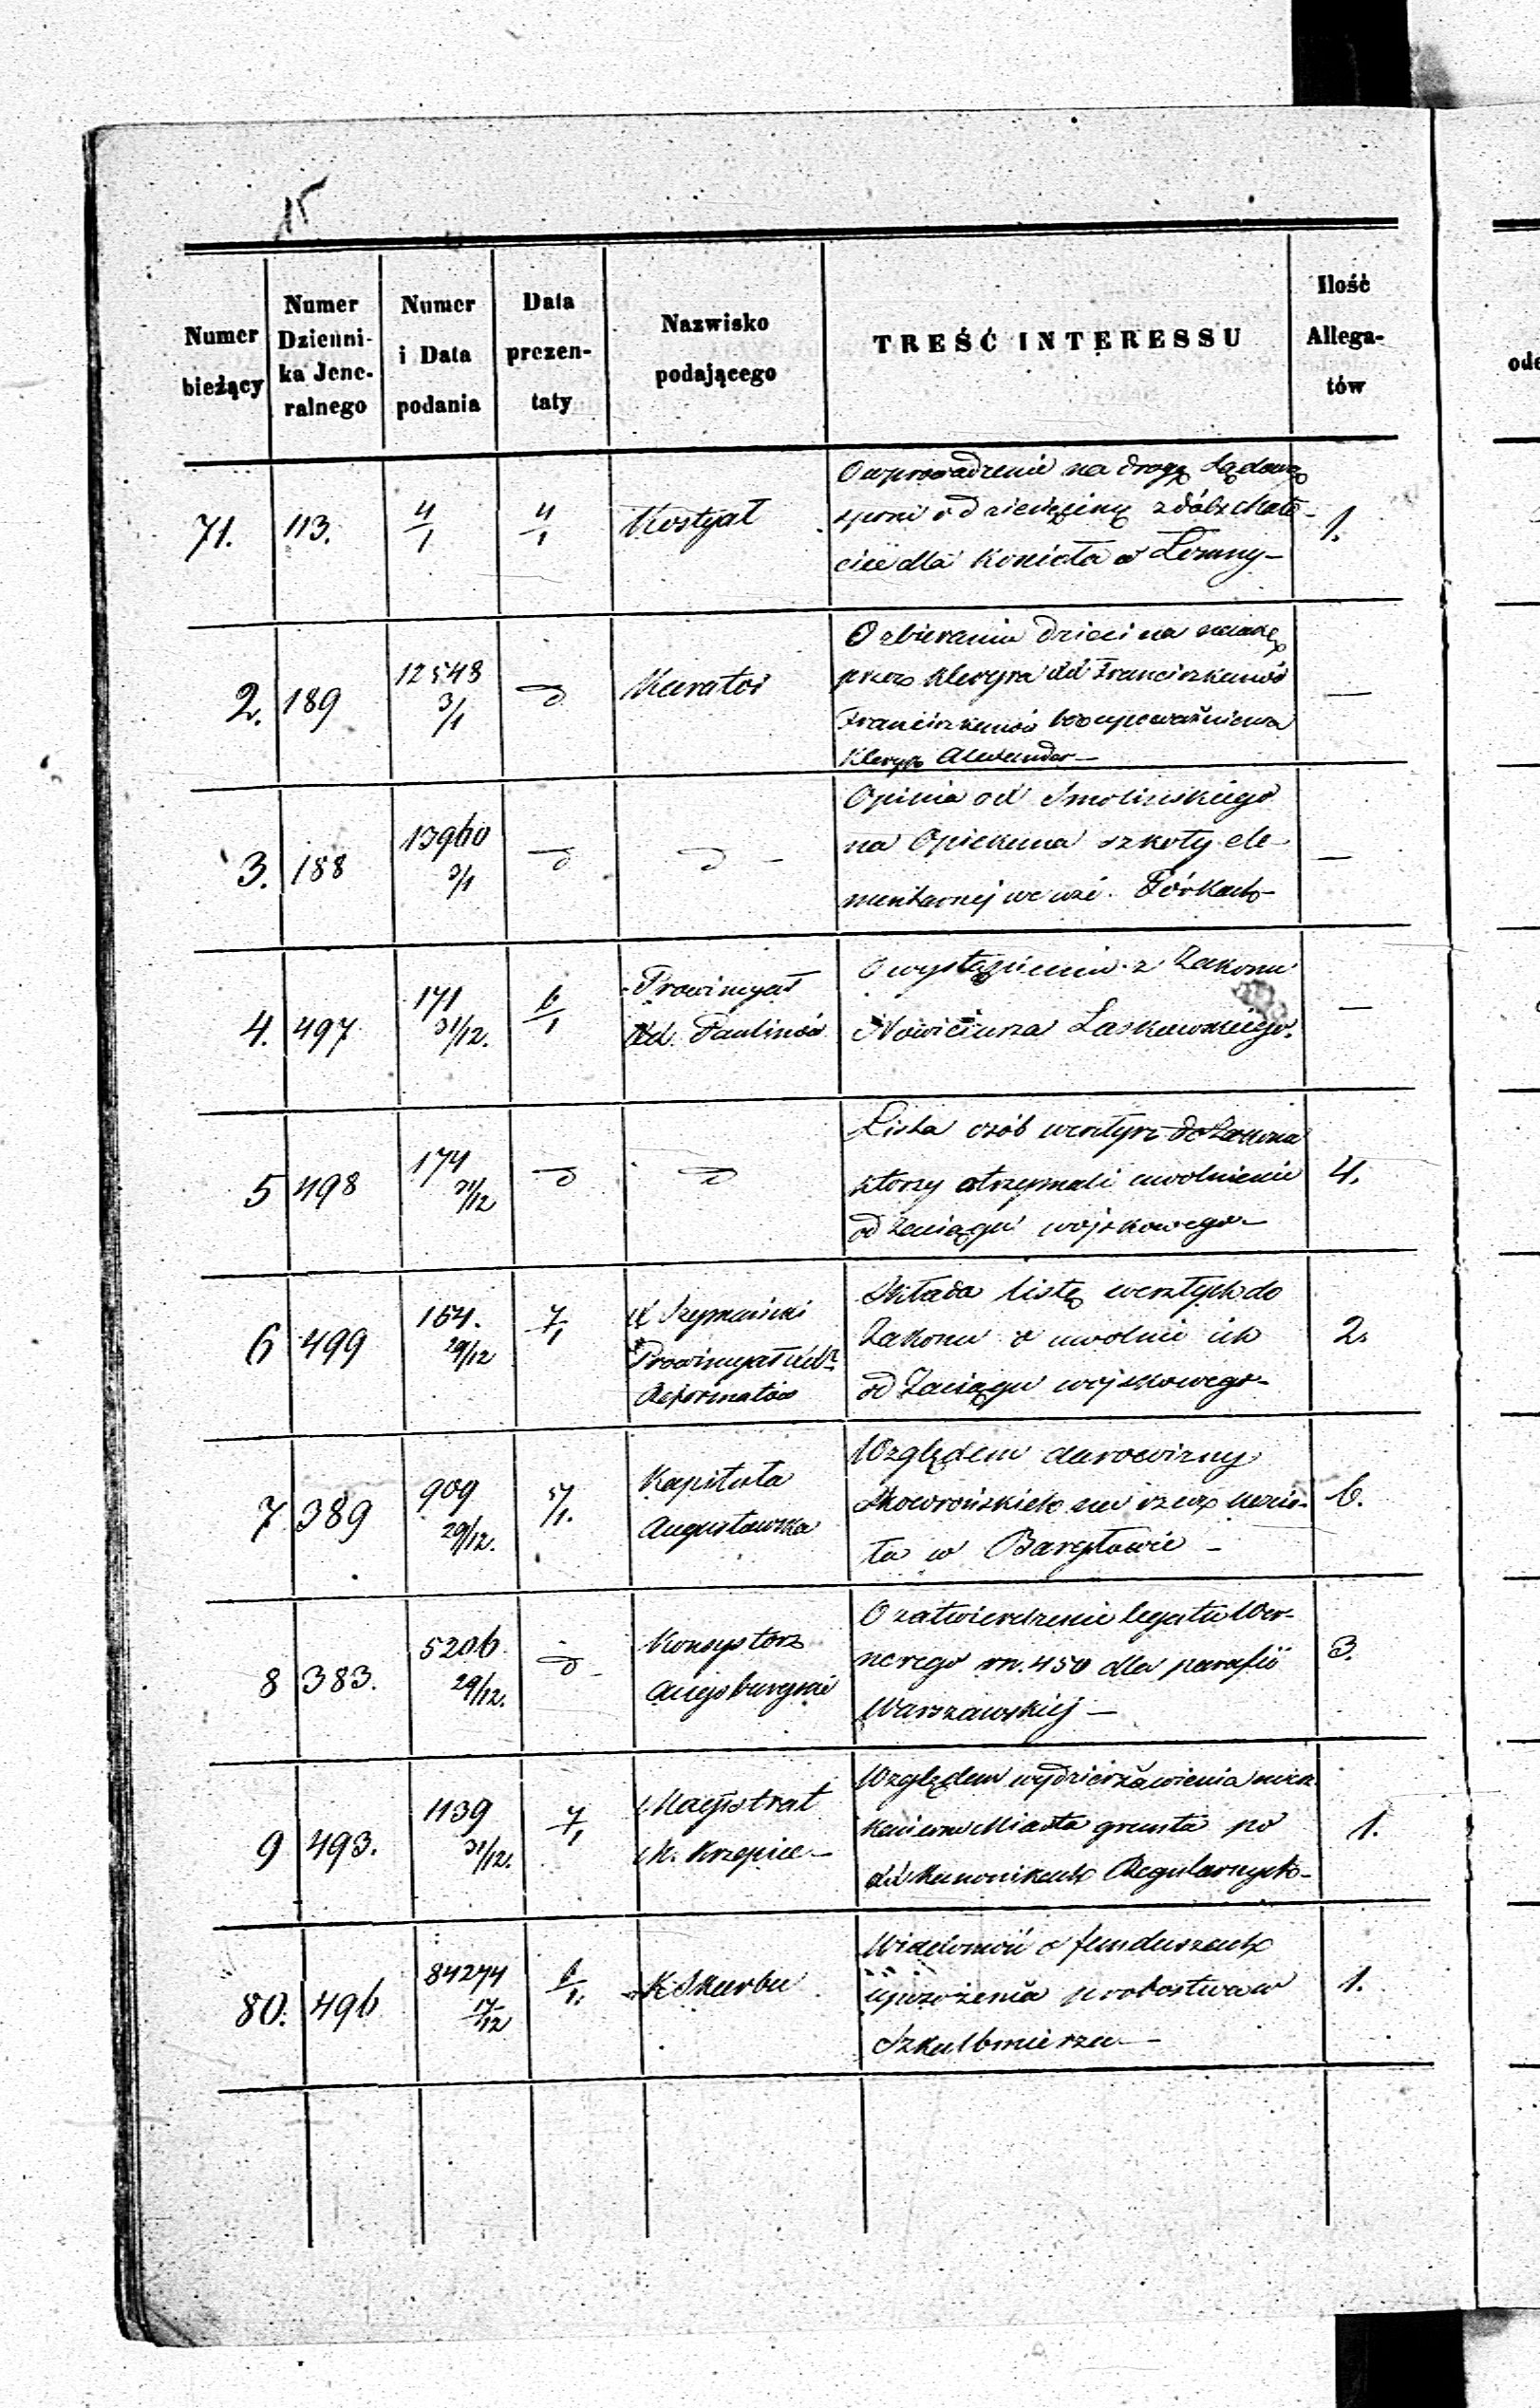 15
Numer bieżący | Numer Dzienni-ka Jene-ralnego | Numer i Data podania | Data prezen-taty | Nazwisko podającego | TREŚĆ INTERESSU | Ilość Allega-tów
71. 113. 4/1 4/1 Kostyał
O wprowadzenie na drogę Sądową
sporu o dziesięcinę z dóbr
dla Kościoła w
1.
2. 189 12543 3/1 Kurator
O zbieraniu dzieci na
przez Kleryka dd Franciszkanów
Franciszkanów bez upoważnienia
Kleryk Alexander —
—
3. 188 13960 3/1
Opinia od Smolińskiego
na Opiekuna szkoły ele-
mentarnej we wsi
—
4. 497 171 31/12. 6/1
Prowincyał
dd. Paulinów
O wystąpieniu z Zakonu
Nowiciusza Laskowskiego.
—
5 498 174 31/12
Lista osób do Zakonu
którzy otrzymali uwolnienie
od Zaciągu wojskowego —
4.
6 499 154. 29/12 7/1
X Szymański
Prowincyał
Reformatów
Składa listę weszłych do
Zakonu o uwolnie ich
od Zaciągu wojskowego —
2.
7. 389 909 29/12. 5/1.
Kapituła
Augustowska
Względem darowizny
Skowrońskich na rzecz Kościo-
ła w
6.
8 383. 5206 29/12.
Konsystorz
Augsburgski
O zatwierdzenie legatu Wer-
nerego rs. 450 dla parafii
Warszawskiej —
3.
9 493. 1139 31/12. 7/1
Magistrat
M. Krzepice —
Względem wydzierżawienia miesz-
kańcom Miasta grunta po
dd Kanonikach Regularnych —
1.
80. 496 84274 17/12 6/1.
K Skarbu
Wiadomość o funduszach
uposażenia probostwa w
Szkalbmierzu —
1.